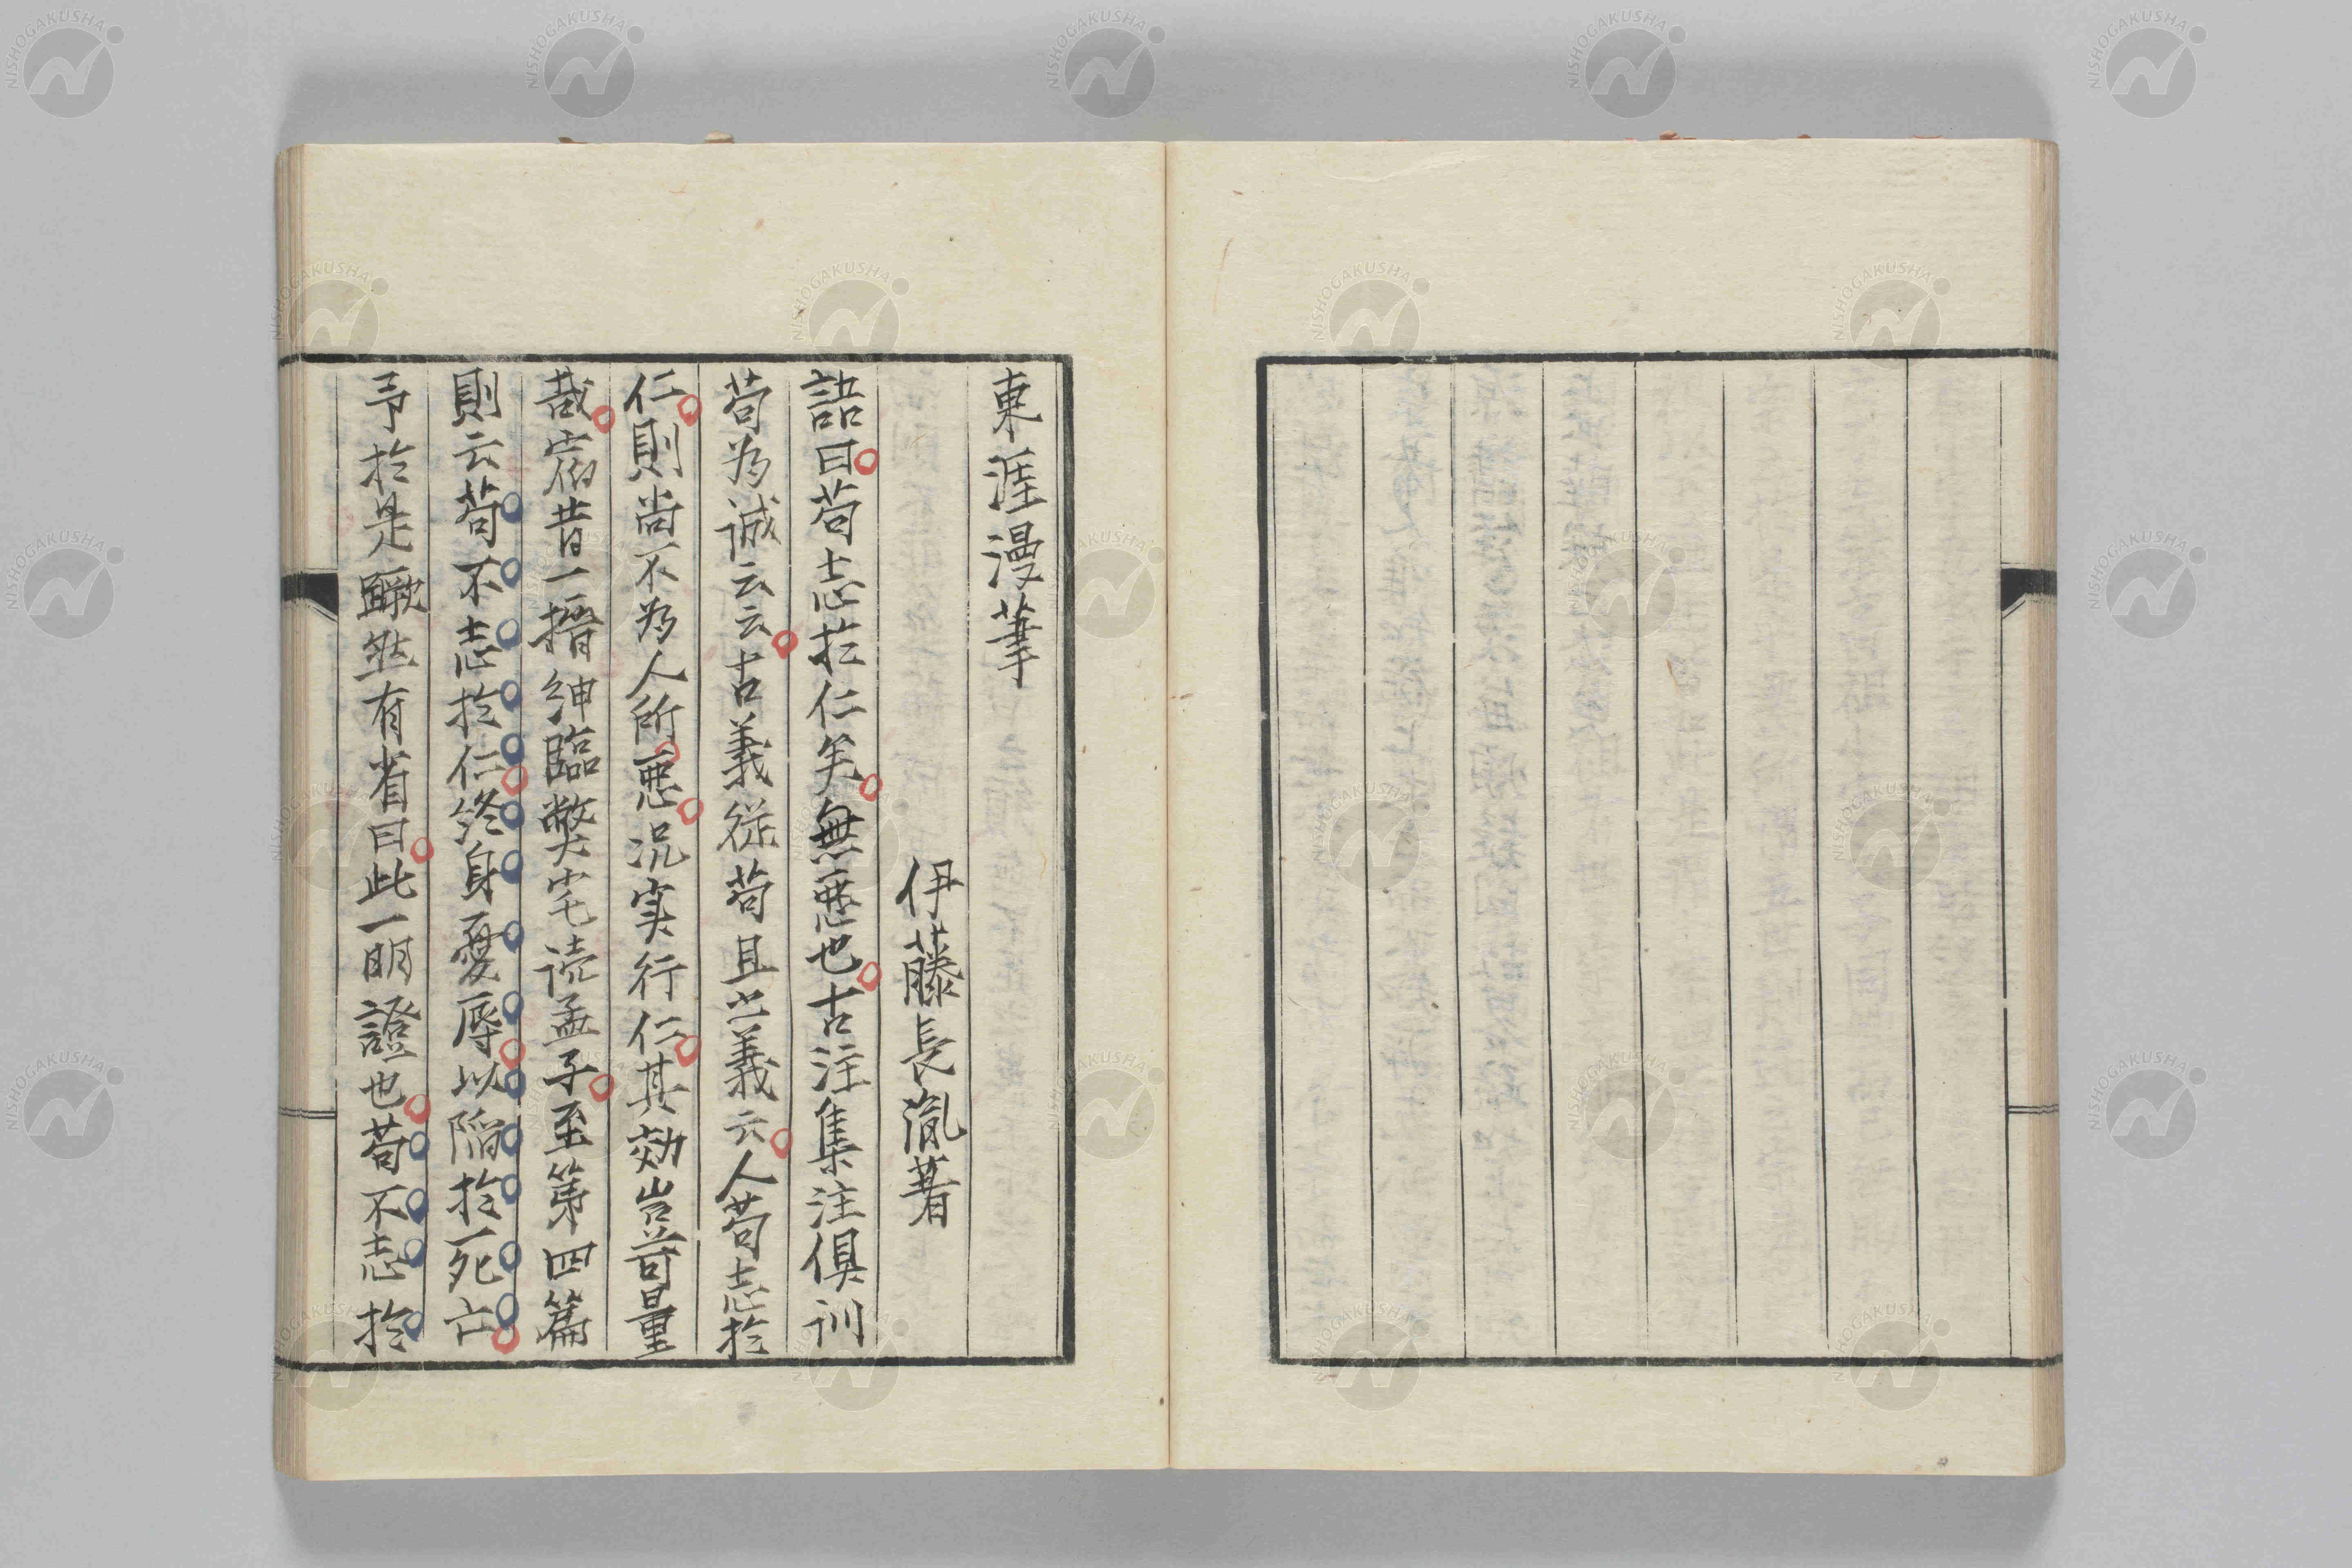 東涯漫筆
伊藤長胤著
語曰苟志於仁矣無悪也古注集注俱訓
苟為誠云云古義従苟且之義云人苟志於
仁則尚不為人所悪況実行仁其効豈可量
哉宿昔一搢紳臨弊宅読孟子至第四篇
則云苟不志於仁終身憂辱以陥於死亡
予於是有省曰此一明證也苟不志於
NISHOGAKUSHA